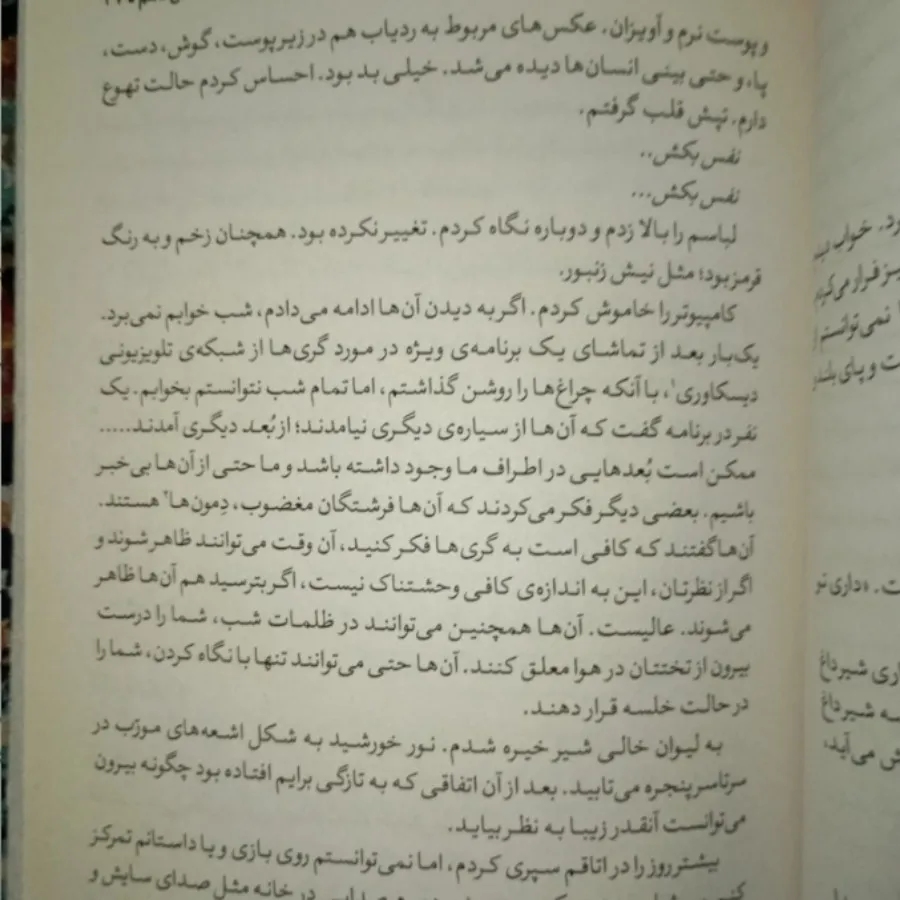 و پوست نرم و آویزان. عکس‌های مربوط به ردیاب هم در زیر پوست، گوش، دست،
پا، و حتی بینی انسان‌ها دیده می‌شد. خیلی بد بود. احساس کردم حالت تهوع
دارم. تپش قلب گرفتم.
نفس بکش..
نفس بکش...
لباسم را بالا زدم و دوباره نگاه کردم. تغییر نکرده بود. همچنان زخم و به رنگ
قرمز بود؛ مثل نیش زنبور.
کامپیوتر را خاموش کردم. اگر به دیدن آن‌ها ادامه می‌دادم، شب خوابم نمی‌برد.
یک‌بار بعد از تماشای یک برنامه‌ی ویژه در مورد گری‌ها از شبکه‌ی تلویزیونی
دیسکاوری۱، با آنکه چراغ‌ها را روشن گذاشتم، اما تمام شب نتوانستم بخوابم. یک
نفر در برنامه گفت که آن‌ها از سیاره‌ی دیگری نیامدند؛ از بُعد دیگری آمدند.....
ممکن است بُعدهایی در اطراف ما وجود داشته باشد و ما حتی از آن‌ها بی‌خبر
باشیم. بعضی دیگر فکر می‌کردند که آن‌ها فرشتگان مغضوب، دِمون‌ها۲ هستند.
آن‌ها گفتند که کافی است به گری‌ها فکر کنید، آن وقت می‌توانند ظاهر شوند و
اگر از نظرتان، این به اندازه‌ی کافی وحشتناک نیست، اگر بترسید هم آن‌ها ظاهر
می‌شوند. عالیست. آن‌ها همچنین می‌توانند در ظلمات شب، شما را درست
بیرون از تختتان در هوا معلق کنند. آن‌ها حتی می‌توانند تنها با نگاه کردن، شما را
در حالت خلسه قرار دهند.
به لیوان خالی شیر خیره شدم. نور خورشید به شکل اشعه‌های مورّب در
سرتاسر پنجره می‌تابید. بعد از آن اتفاقی که به تازگی برایم افتاده بود چگونه بیرون
می‌توانست آنقدر زیبا به نظر بیاید.
بیشتر روز را در اتاقم سپری کردم، اما نمی‌توانستم روی بازی و یا داستانم تمرکز
در خانه مثل صدای سایش و
ود. خواب
فرار می‌کردم
نمی‌توانستم
ت و پای بلند
ت. «داری
اری شیر داغ
سه شیر داغ
ش می‌آید،